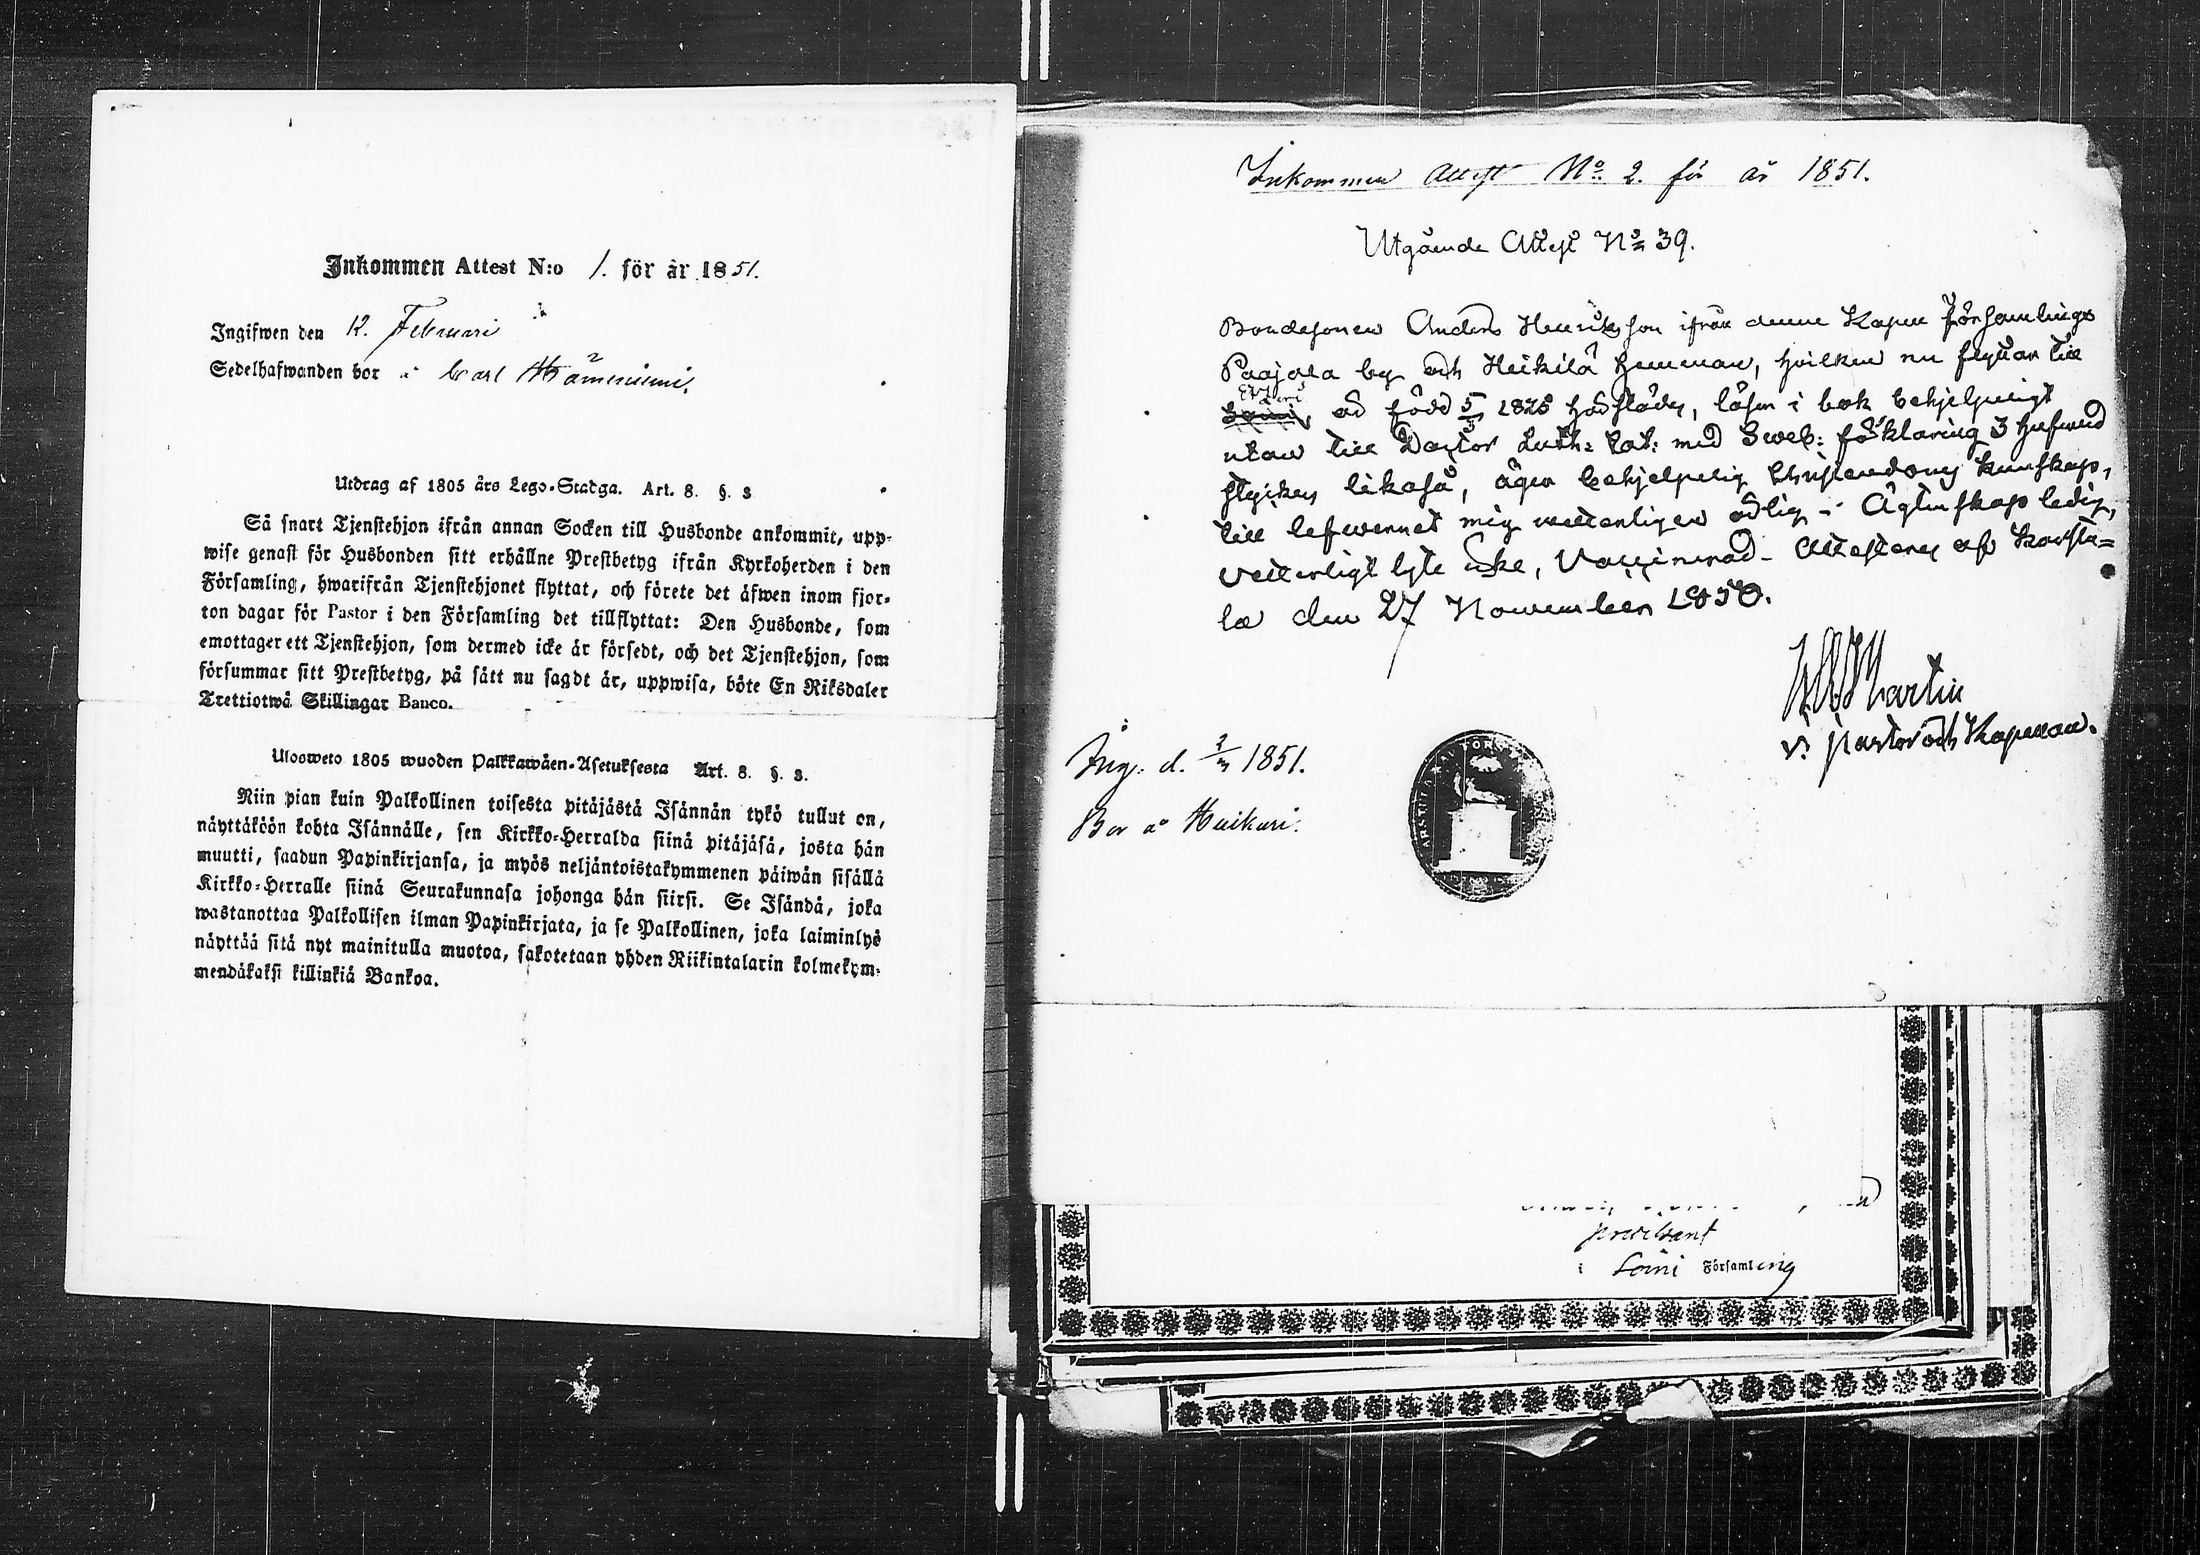 Inkommen Attest N:o 1. för år 1851.
Ingifwen den 12. Februari
Sedelhafwanden bor å Carl Hämeniemi.
Utdrag af 1805 års Lego-Stadga. Art. 8. §. 3
Så snart Tjenstehjon ifrån annan Socken till Husbonde ankommit, upp-
wise genast för Husbonden sitt erhållne Prestbetyg ifrån Kyrkoherden i den
Församling, hwarifrån Tjenstehjonet flyttat, och förete det äfwen inom fjor-
ton dagar för Pastor i den Församling det tillflyttat: Den Husbonde, som
emottager ett Tjenstehjon, som dermed icke är försedt, och det Tjenstehjon, som
försummar sitt Prestbetyg, på sätt nu sagdt är, uppwisa, böte En Riksdaler
Trettiotwå Skillingar Banco.
Ulosweto 1805 wuoden Palkkawäen-Asetuksesta Art. 8. §. 3.
Niin pian kuin Palkollinen toisesta pitäjästä Isännän tykö tullut on,
näyttäköön kohta Isännälle, sen Kirkko-Herralda siinä pitäjäsä, josta hän
muutti, saadun Papinkirjansa, ja myös neljäntoistakymmenen päiwän sisällä
Kirkko-Herralle siinä Seurakunnasa johonga hän siirsi. Se Isändä, joka
wastanottaa Palkollisen ilman Papinkirjata, ja se Palkollinen, joka laiminlyö
näyttää sitä nyt mainitulla muotoa, sakotetaan yhden Riikintalarin kolmekym-
mendäkaksi killinkiä Bankoa.
Inkommen Attest No. 2. för år 1851.
Utgående Attest No 39.
Bondesonen Anders Henriksson ifrån denne Kapell Församlings
Paajala by och Heikilä hemman, hvilken nu flyttar till
är född 5/3 1825 läser i bok behjelpligt
utan till Doctor Luth: Cat: med Sveb: förklaring 3 hufwud
stycken likaså, äger behjelpelig Christendoms kunskap,
till lefwernet mig wetterligen ärlig – Ägtenskap ledig,
vetterligt lyte icke, Vaccinerad – Attesterar af Karstu=
la den 27 November 1850.
Martin
v. pastor och Kapellan.
Ing. d. 2/3 1851.
Bor å Huikuri.
i Soini Församling